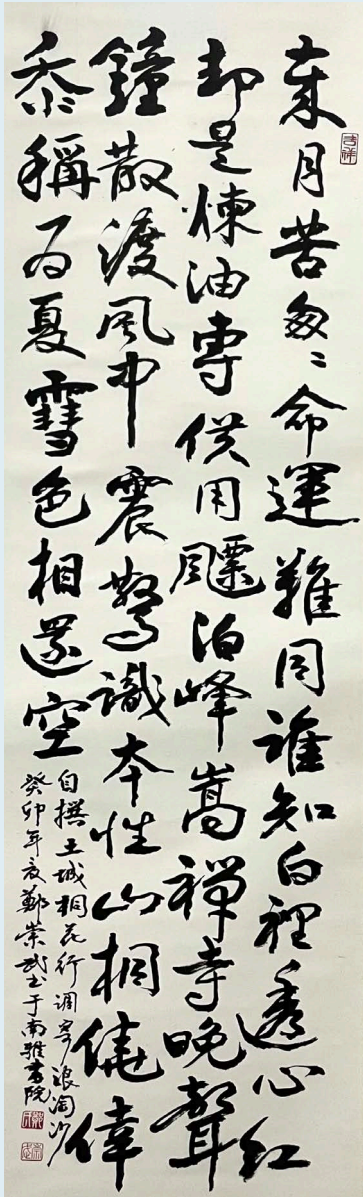 歲月苦匆々命運難同誰知白裡透心紅
却是煉油專供用飄泊峰嵩禪寺晚聲
鐘散渡風中震驚識本性山桐僥倖
忝稱为夏雪色相還空
自撰土城桐花行調寄浪淘沙
癸卯年夏鄭榮武书于南雅書院
吉祥